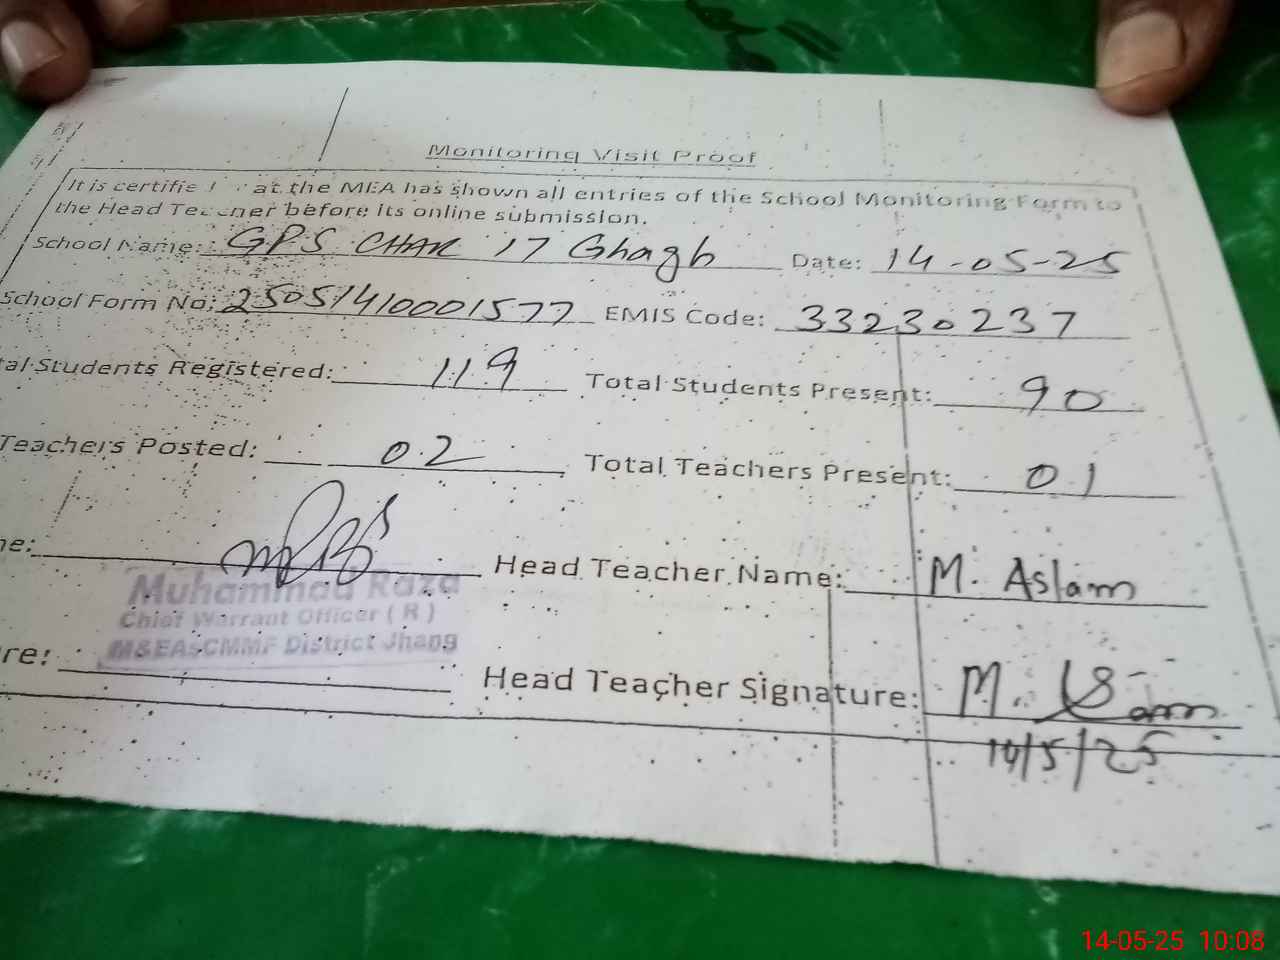 Monitoring Visit Proof
It is certifie at the MEA has shown all entries of the School Monitoring Form to
the Head Teacher before its online submission.
School Name: GPS CHAK 17 Ghagh Date: 14-05-25
School Form No: 25051410001577 EMIS Code: 33230237
tal Students Registered: 119 Total Students Present: 90
Teachers Posted: 02 Total Teachers Present: 01
me: Head Teacher Name: M. Aslam
Muhammad Raza
Chief Warrant Officer ( R )
M&EAsCMMF District Jhang
re: Head Teacher Signature: M.
14/5/25
14-05-25 10:08